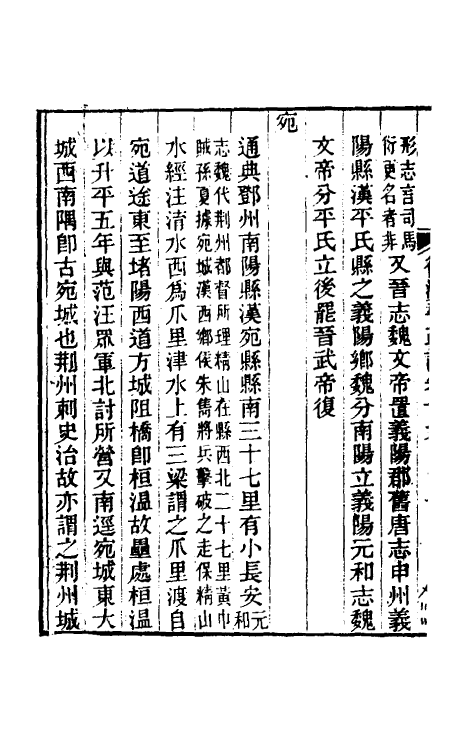 形志言司馬
衍更名者非又晉志魏文帝置義陽郡舊唐志申州義
陽縣漢平氏縣之義陽鄉魏分南陽立義陽元和志魏
文帝分平氏立後罷晉武帝復
宛
通典鄧州南陽縣漢宛縣縣南三十七里有小長安元和
志魏代荆州都督所理精山在縣西北二十七里黃巾
賊孫夏據宛城漢西鄉侯朱雋將兵擊破之走保精山
水經注淯水西爲爪里津水上有三梁謂之爪里渡自
宛道途東至堵陽西道方城阻橋卽桓温故壘處桓温
以升平五年與范汪眾軍北討所營又南逕宛城東大
城西南隅卽古宛城也荆州刺史治故亦謂之荆州城